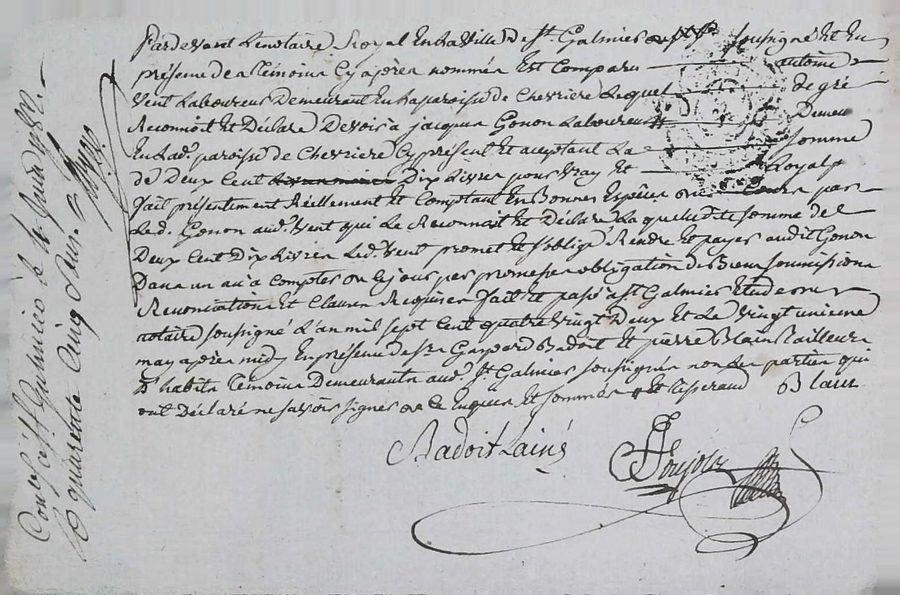 Pardevant le notaire Royal en la ville de St. Galmier soussigné et en
présence des témoins cy après nommés est comparu antoine
Vent Laboureur demeurant en la paroisse de Chevriere Lequel de gré
Reconnoit et Déclare Devoir à jacques Gonon Laboureur Demeu
en Lad. paroisse de Chevriere cy présent et aceptant La somme
de Deux Cent Dix Livres pour vray et Loyal
fait présentement Réellement et Comptant en Bonnes Espèces par
Led. Gonon aud. Vent qui Le Reconnoit et Déclare La quelle dite somme de
Deux Cent Dix Livres Led. Vent promet et s'oblige Rendre et payer audit Gonon
Dans un an à Compter de ce jour par promesse obligation de Biens soumissions
Renonciations et Clauses Requises fait et passé à St Galmier Etude du
notaire soussigné L'an mil sept Cent quatre vingt Deux et Le Vingt unieme
may après midy En présence de Sr. Gaspard Badoit et pierre Blain Tailleur
D'habits témoins Demeurants aud. St Galmier soussignés non les parties qui
ont Déclaré ne savoir signer de ce Enquis et sommés
Blain
Badoit Lainé
Conlé à St Galmier le 4 Juin 1782.
quarante cinq